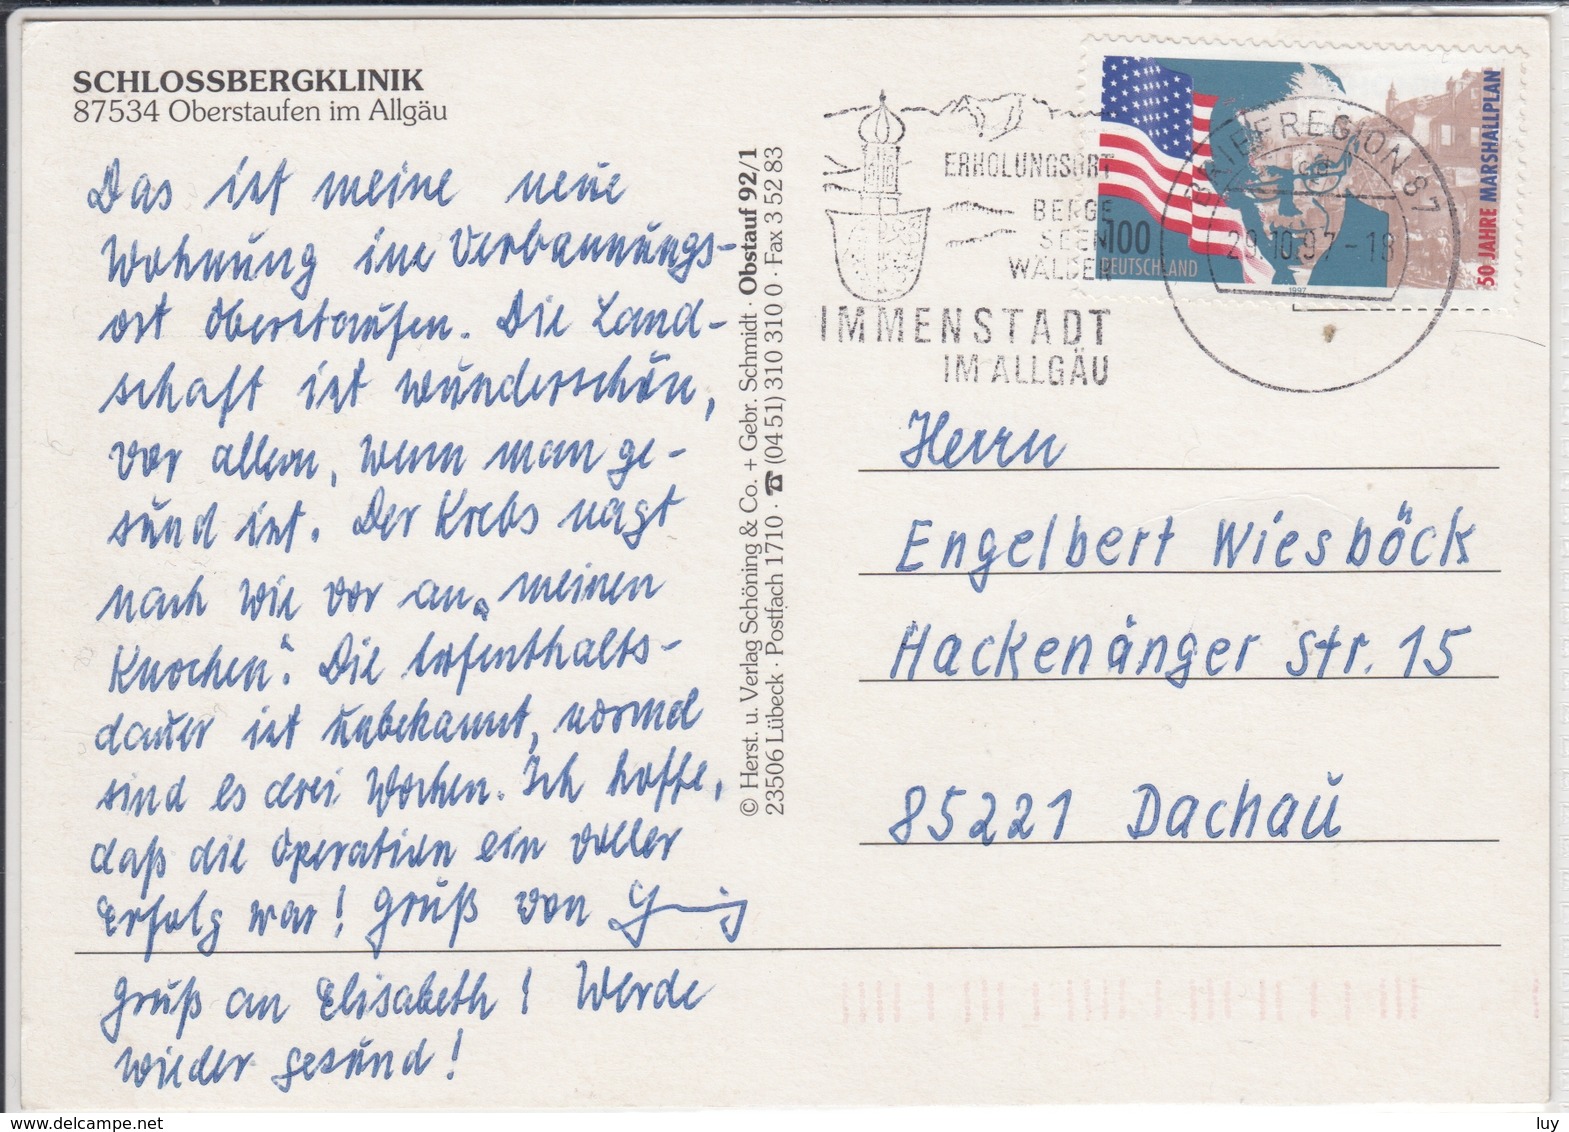 SCHLOSSBERGKLINIK
87534 Oberstaufen im Allgäu
Das ist meine neue
Wohnung im Verbannungs-
ort Oberstaufen. Die Land-
schaft ist wunderschön,
vor allem, wenn man ge-
sund ist. Der Krebs nagt
nach wie vor an „meinen
Knochen". Die Aufenthalts-
dauer ist unbekannt, normal
sind es drei Wochen. Ich hoffe,
daß die Operation ein voller
Erfolg war! Gruß von
Gruß an Elisabeth! Werde
wieder gesund!
© Herst. u. Verlag Schöning & Co. + Gebr. Schmidt · Obstauf 92/1
23506 Lübeck · Postfach 1710 · ☎ (04 51) 310 310 0 · Fax 3 52 83
ERHOLUNGSORT
BERGE
SEEN
WÄLDER
IMMENSTADT
IM ALLGÄU
100
DEUTSCHLAND
1997
50 JAHRE MARSHALLPLAN
BRIEFREGION 87
29.10.97-18
Herrn
Engelbert Wiesböck
Hackenänger Str. 15
85221 Dachau
delcampe.net
luy